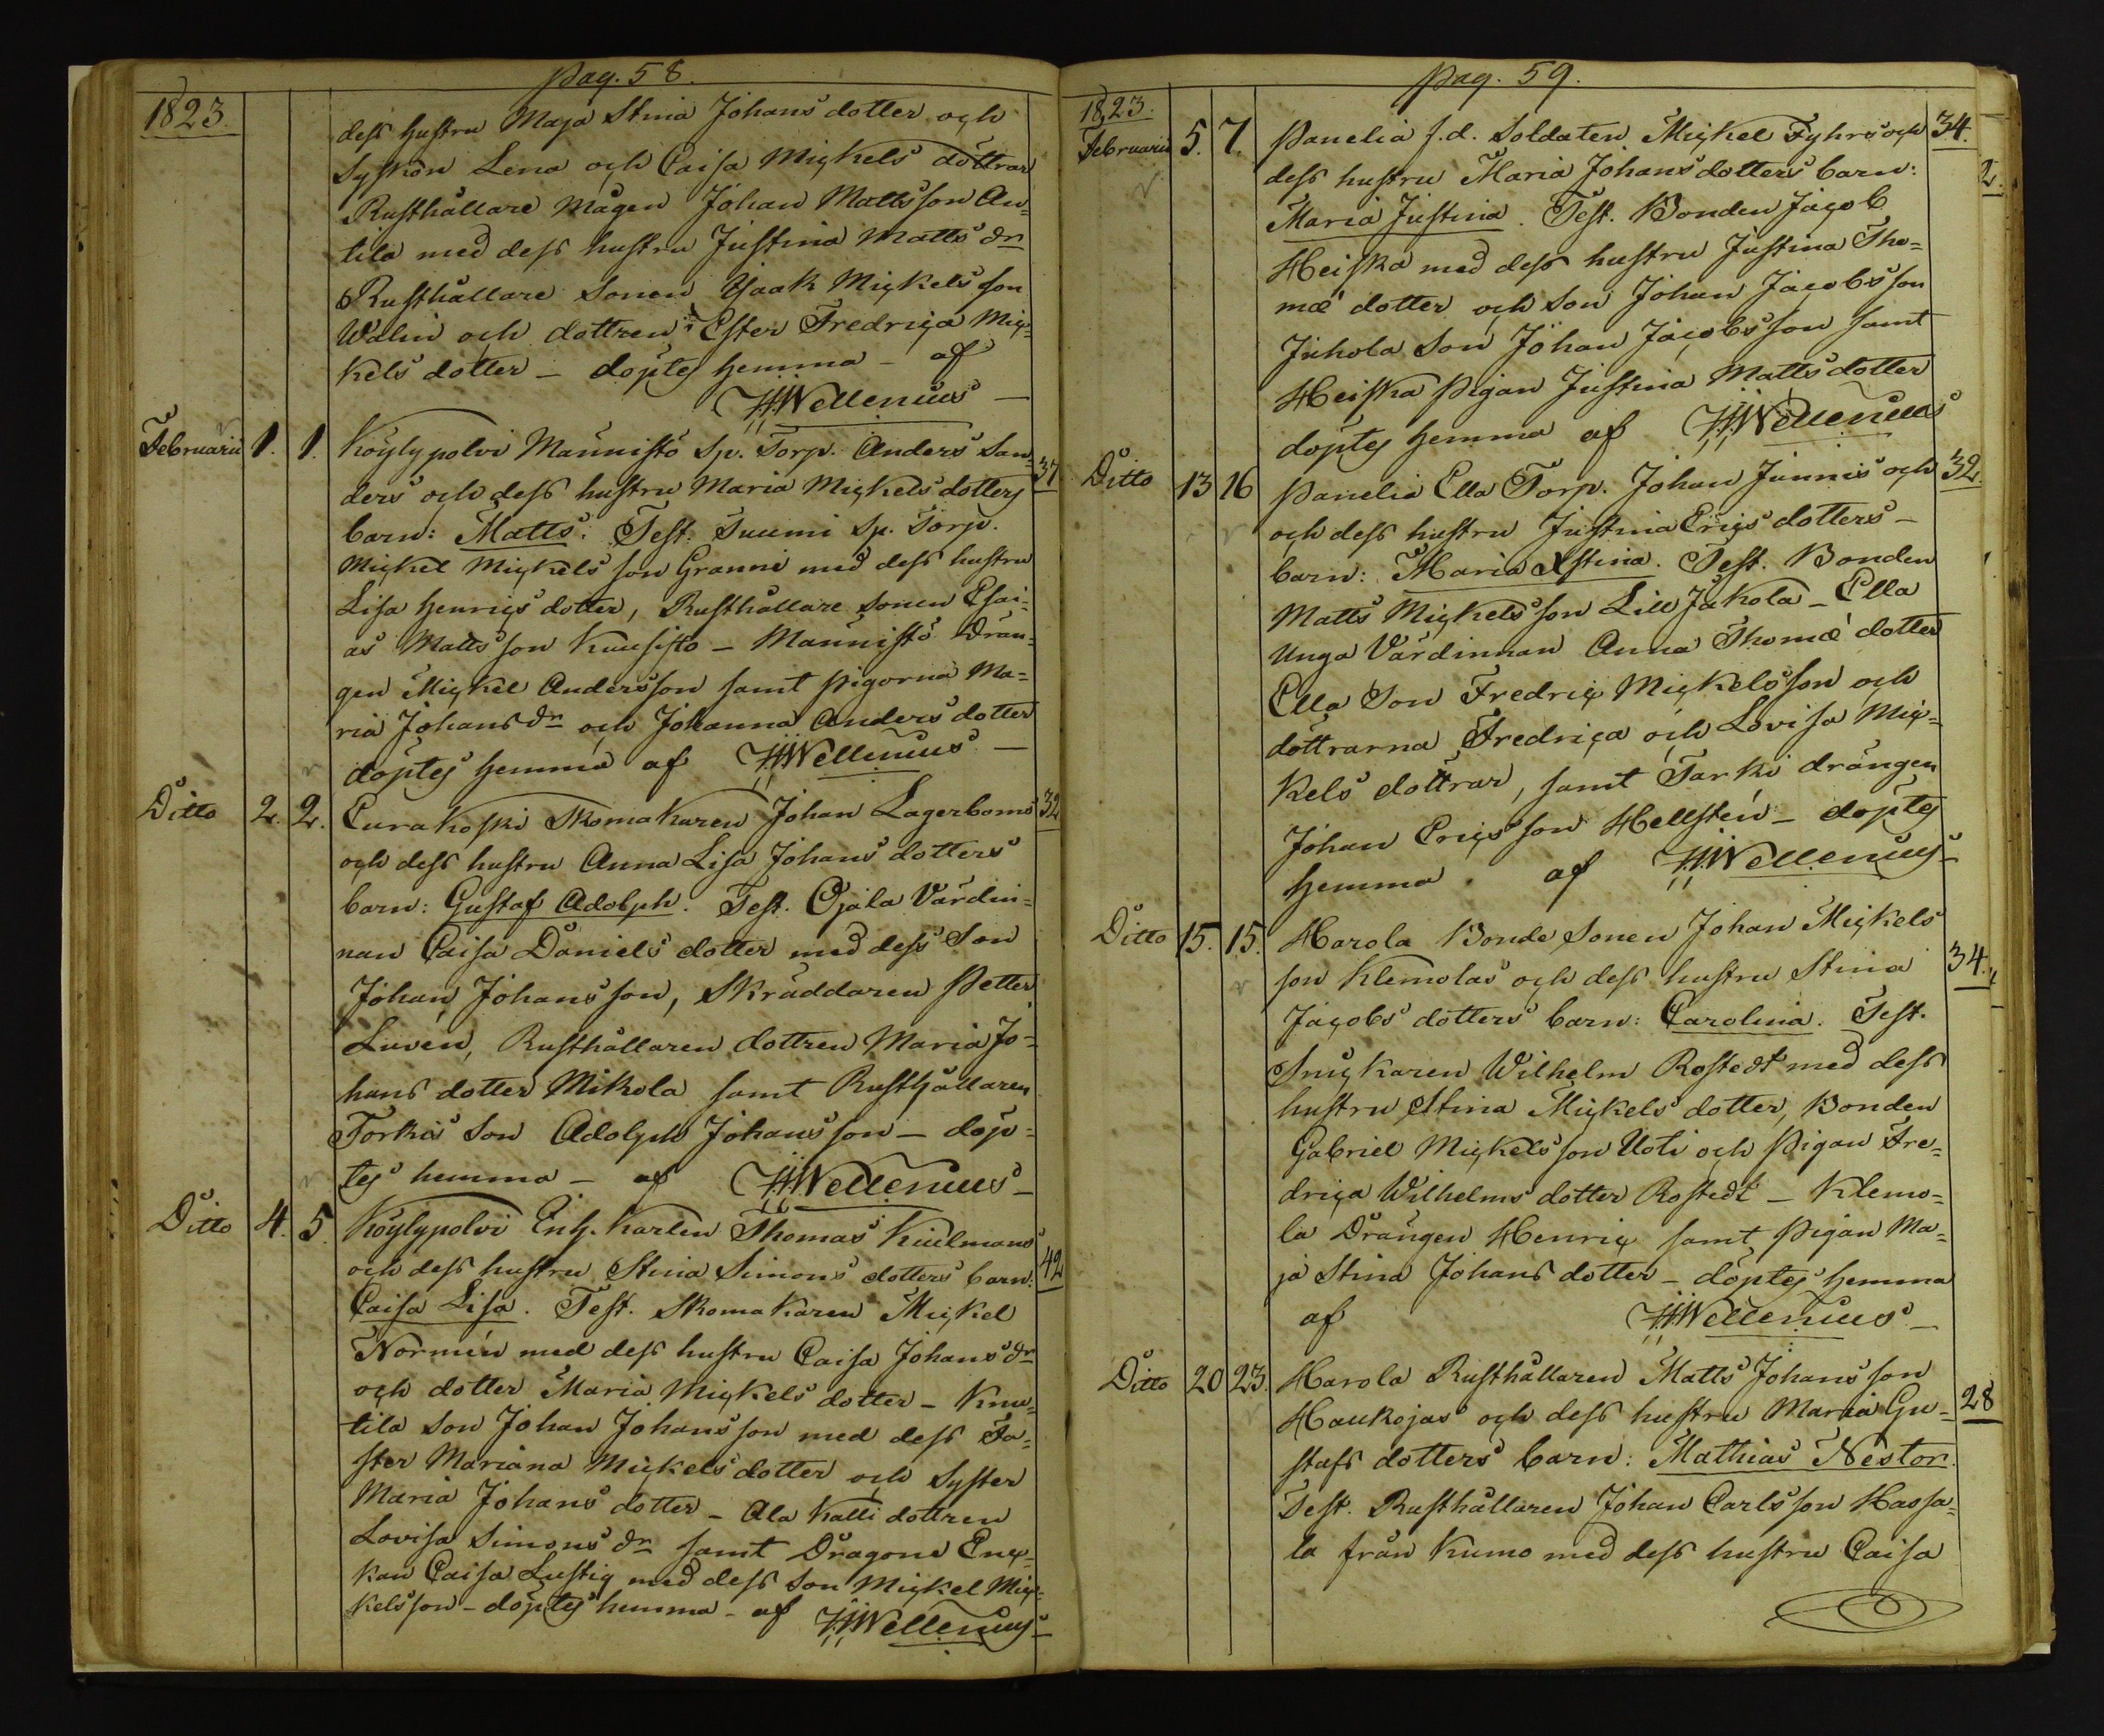 Pag. 58.
1823.
dess hustru Maja Stina Johans dotter och
Syskon Lena och Caisa Mickels döttrar
Rusthållare Mågen Johan Mattsson An=
tila med dess hustru Justina Matts dr
Rusthållare Sonen Isaak Mickelsson
Walin och dottren Ester Fredrica Mic=
kels dotter – döptes hemma – af
HHWellenius –
Februarii 1. 1. Köylypolvi Männistö Sp. Torp. Anders San= 37
ders och dess hustru Maria Mickels dotters
barn: Matts. Test. Suumi Sp. Torp.
Mickel Mickelsson Granni med dess hustru
Lisa Henrics dotter, Rusthållare Sonen Esai=
as Mattsson Kuusisto – Männistö Drän=
gen Mickel Andersson samt pigorna Ma=
ria Johans dr och Johanna Anders dotter
döptes hemma af HHWellenius –
Ditto 2. 2. Eurakoski Skomakaren Johan Lagerboms 32
och dess hustru Anna Lisa Johans dotters
barn: Gustaf Adolph. Test. Ojala Värdin=
nan Caisa Daniels dotter med dess Son
Johan Johansson, Skräddaren Petter
Luvén, Rusthållaren dottren Maria Jo=
hans dotter Mikola samt Rusthållaren
Torkis Son Adolph Johansson – döp=
tes hemma – af HHWellenius –
Ditto 4. 5. Köylypolvi Enh. Karlen Thomas Kiulmans
och dess hustru Stina Simons dotters barn: 42
Caisa Lisa. Test. Skomakaren Mickel
Normén med dess hustru Caisa Johans dr
och dotter Maria Mickels dotter – Knu=
tila Son Johan Johansson med dess Fa=
ster Mariana Mickels dotter och Syster
Maria Johans dotter – Ala Kalli dottren
Lovisa Simons dr samt Dragone Enc=
kan Caisa Lustig med dess Son Mickel Mic=
kelsson – döptes hemma – af HHWellenius –
Pag. 59.
1823.
Februarii 5. 7. Panelia f.d. Soldaten Mickel Fyhrs och 34.
dess hustru Maria Johans dotters barn: 2.
Maria Justina. Test. Bonden Jacob
Heiska med dess hustru Justina Tho=
mæ dotter och Son Johan Jacobsson
Juhola Son Johan Jacobsson samt
Heiska Pigan Justina Matts dotter
döptes hemma af HHWellenius
Ditto 13 16 Panelia Ella Torp. Johan Junnis och 32.
och dess hustru Justina Erics dotters –
barn: Maria Xstina. Test. Bonden
Matts Mickelsson Lill Jakola – Ella
Unga Värdinnan Anna Thomæ dotter
Ella Son Fredric Mickelsson och
döttrarna Fredrica och Lovisa Mic=
kels döttrar, samt Tarki drängen
Johan Ericsson Hellstén – döptes
hemma af HHWellenius –
Ditto 15. 15. Harola Bonde Sonen Johan Mickels
son Klemolas och dess hustru Stina 34.
Jacobs dotters barn: Carolina. Test.
Snickaren Wilhelm Rostedt med dess
hustru Stina Mickels dotter, Bonden
Gabriel Mickelsson Uoti och Pigan Fre=
drica Wilhelms dotter Rostedt – Klemo=
la Drängen Henric samt Pigan Ma=
ja Stina Johans dotter – döptes hemma
af HHWellenius –
Ditto 20 23. Harola Rusthållaren Matts Johansson
Haukojas och dess hustru Maria Gu= 28
stafs dotters barn: Mathias Nestor.
Test. Rusthållaren Johan Carlsson Kassa=
la från Kumo med dess hustru Caisa